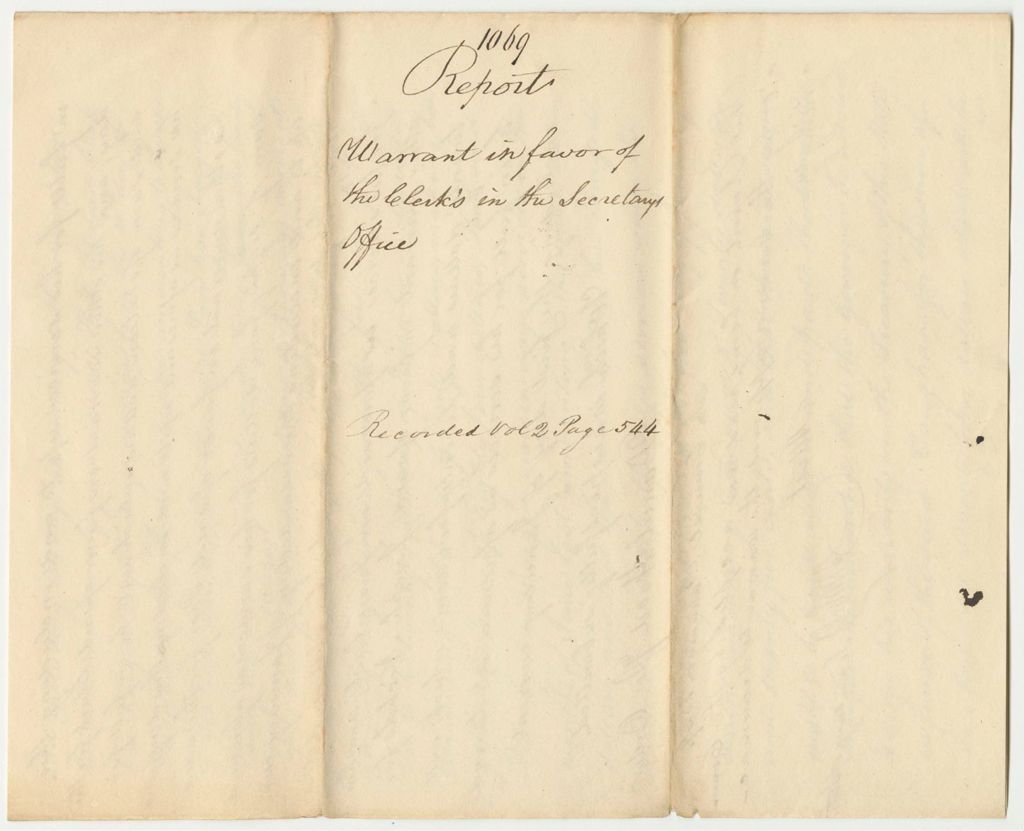 1069
Report
Warrant in favor of
the Clerk's in the Secretarys
Office
Recorded Vol 2 Page 544